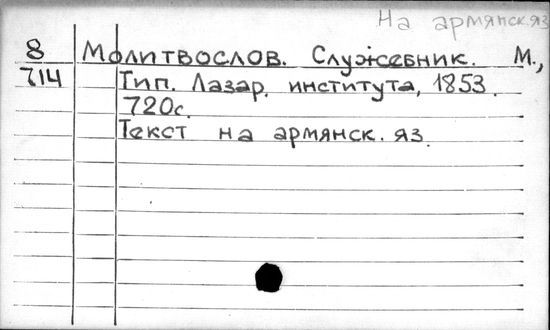 На армянск.яз
8 Молитвослов. Служебник. М.,
714 Тип. Лазар. института, 1853.
720с.
Текст на армянск. яз.